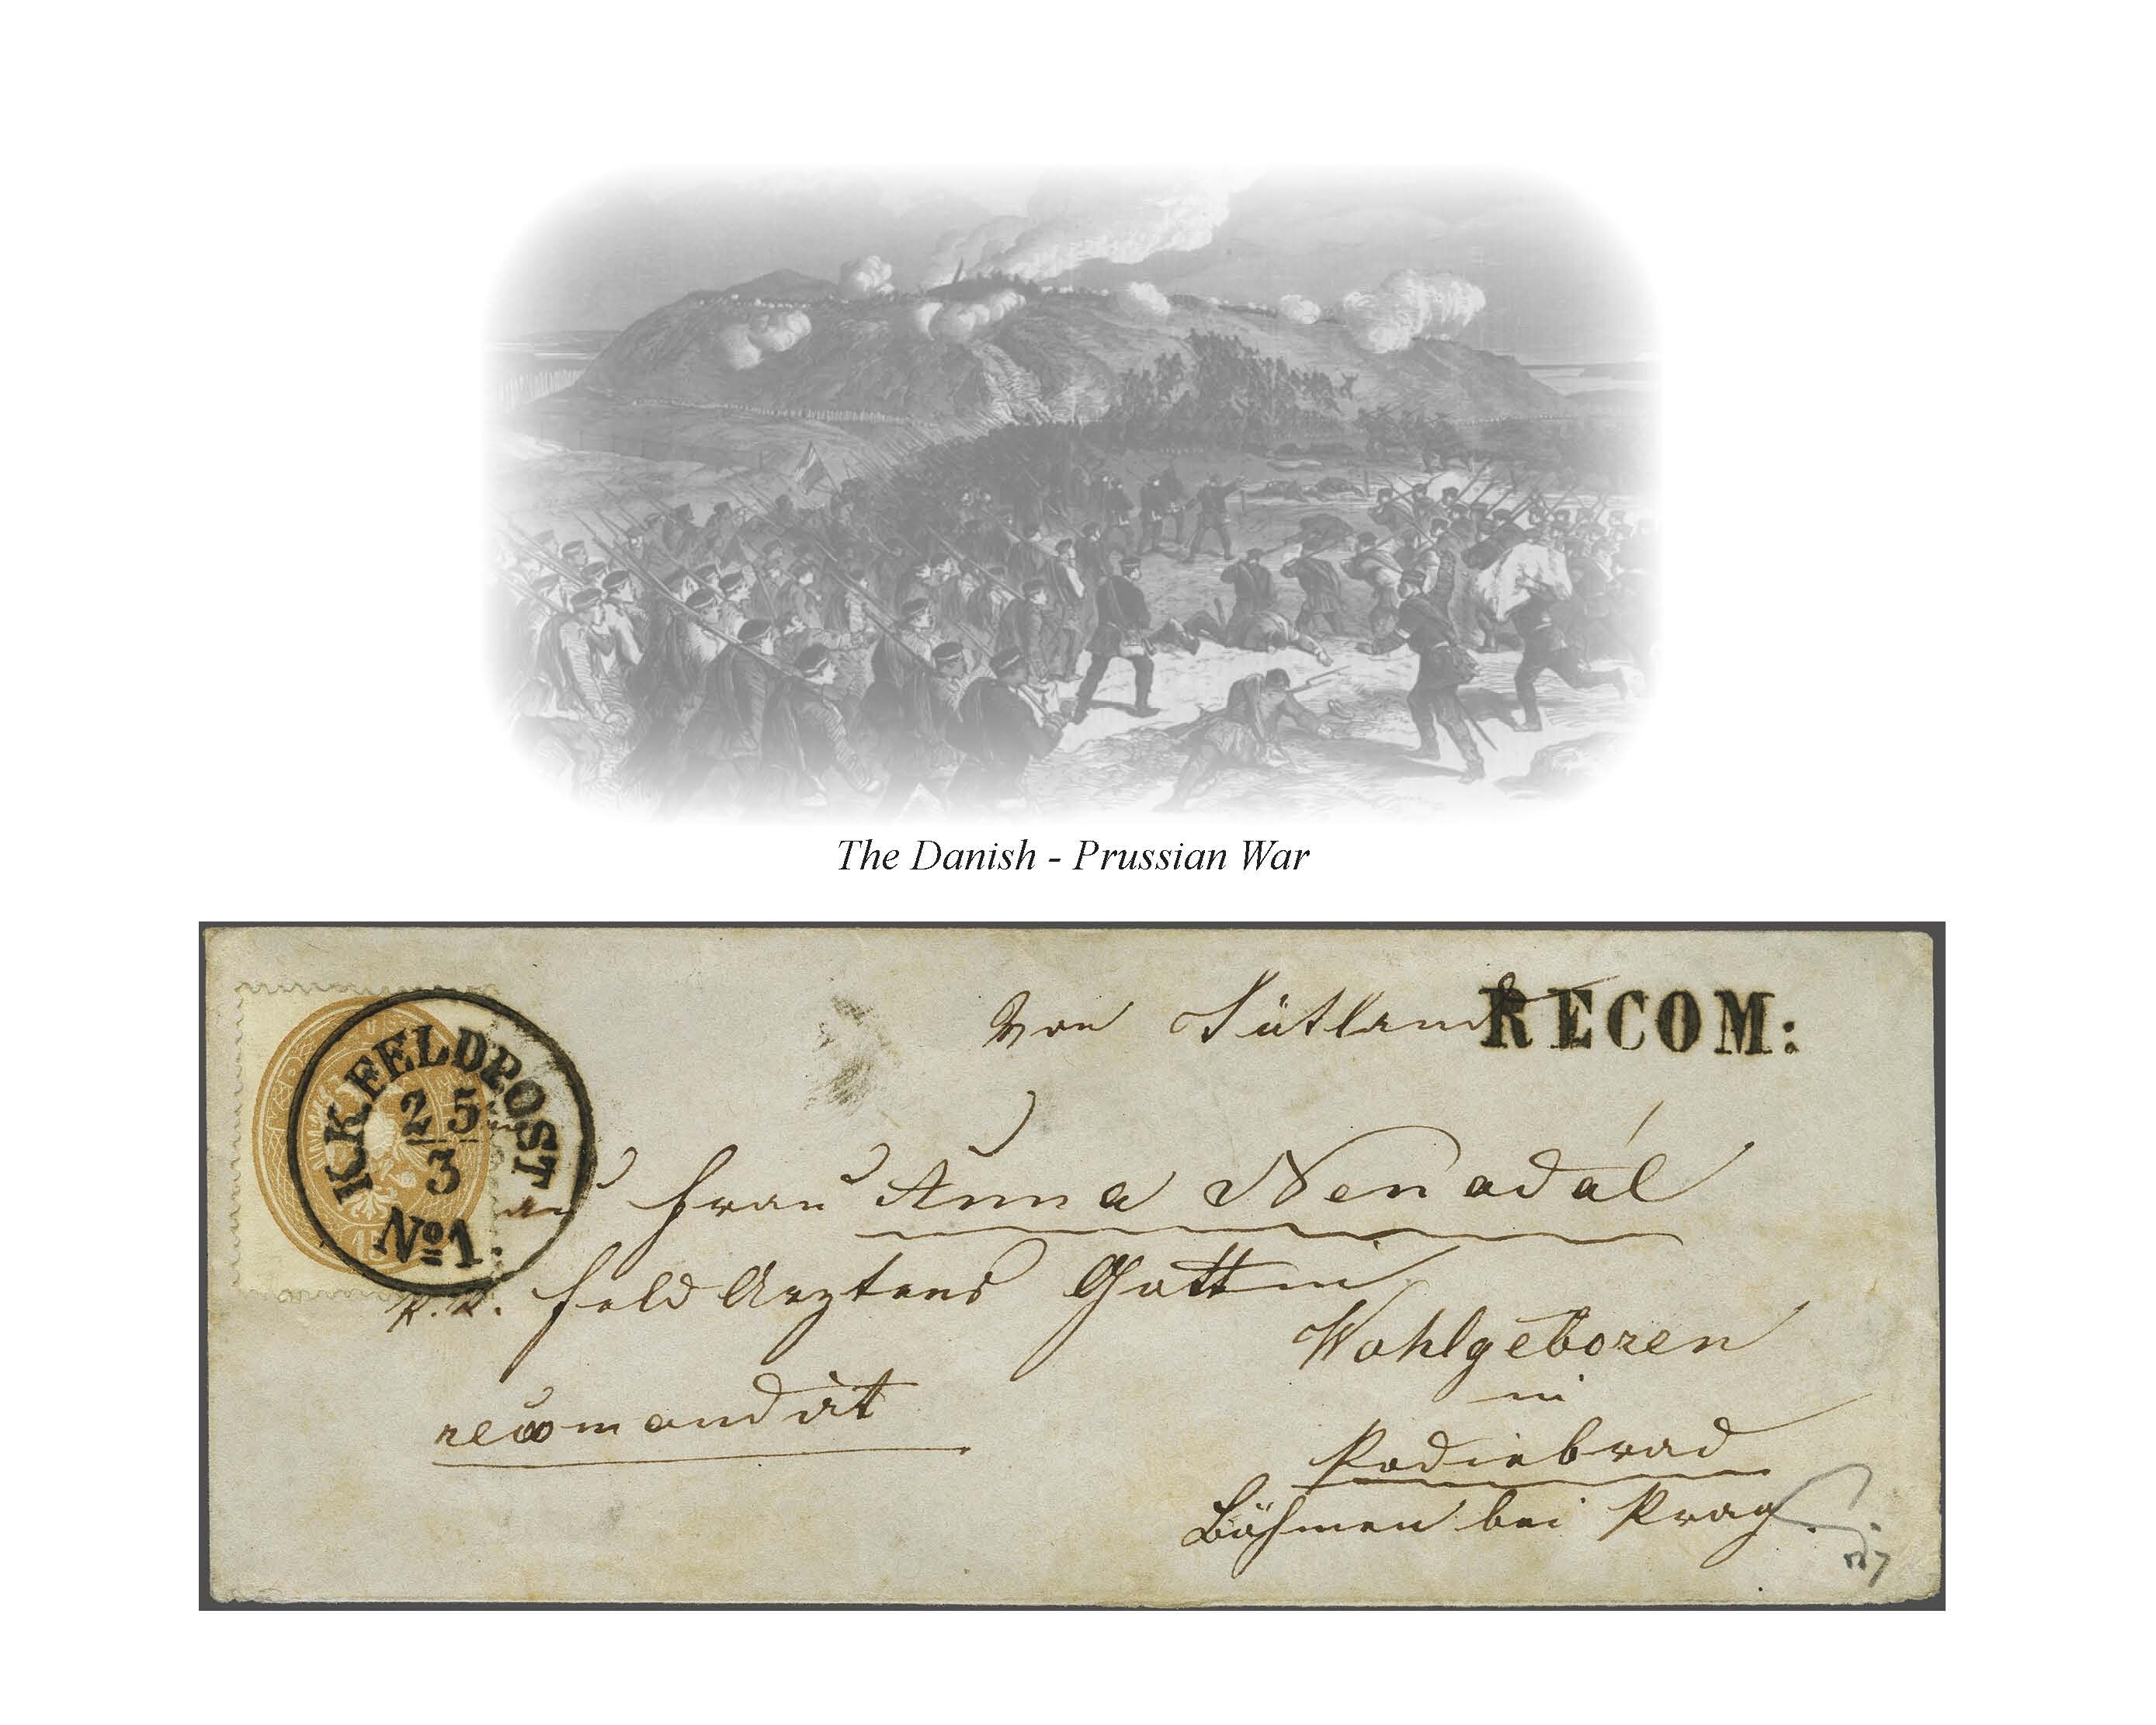 The Danish - Prussian War
Von Jütland
RECOM:
K.K.FELDPOST
25
3
No 1.
an Frau Anna Nenadál
k. k. Feld Arztens Gattin
Wohlgeboren
in
recomandirt
Podiebrad
Böhmen bei Prag.